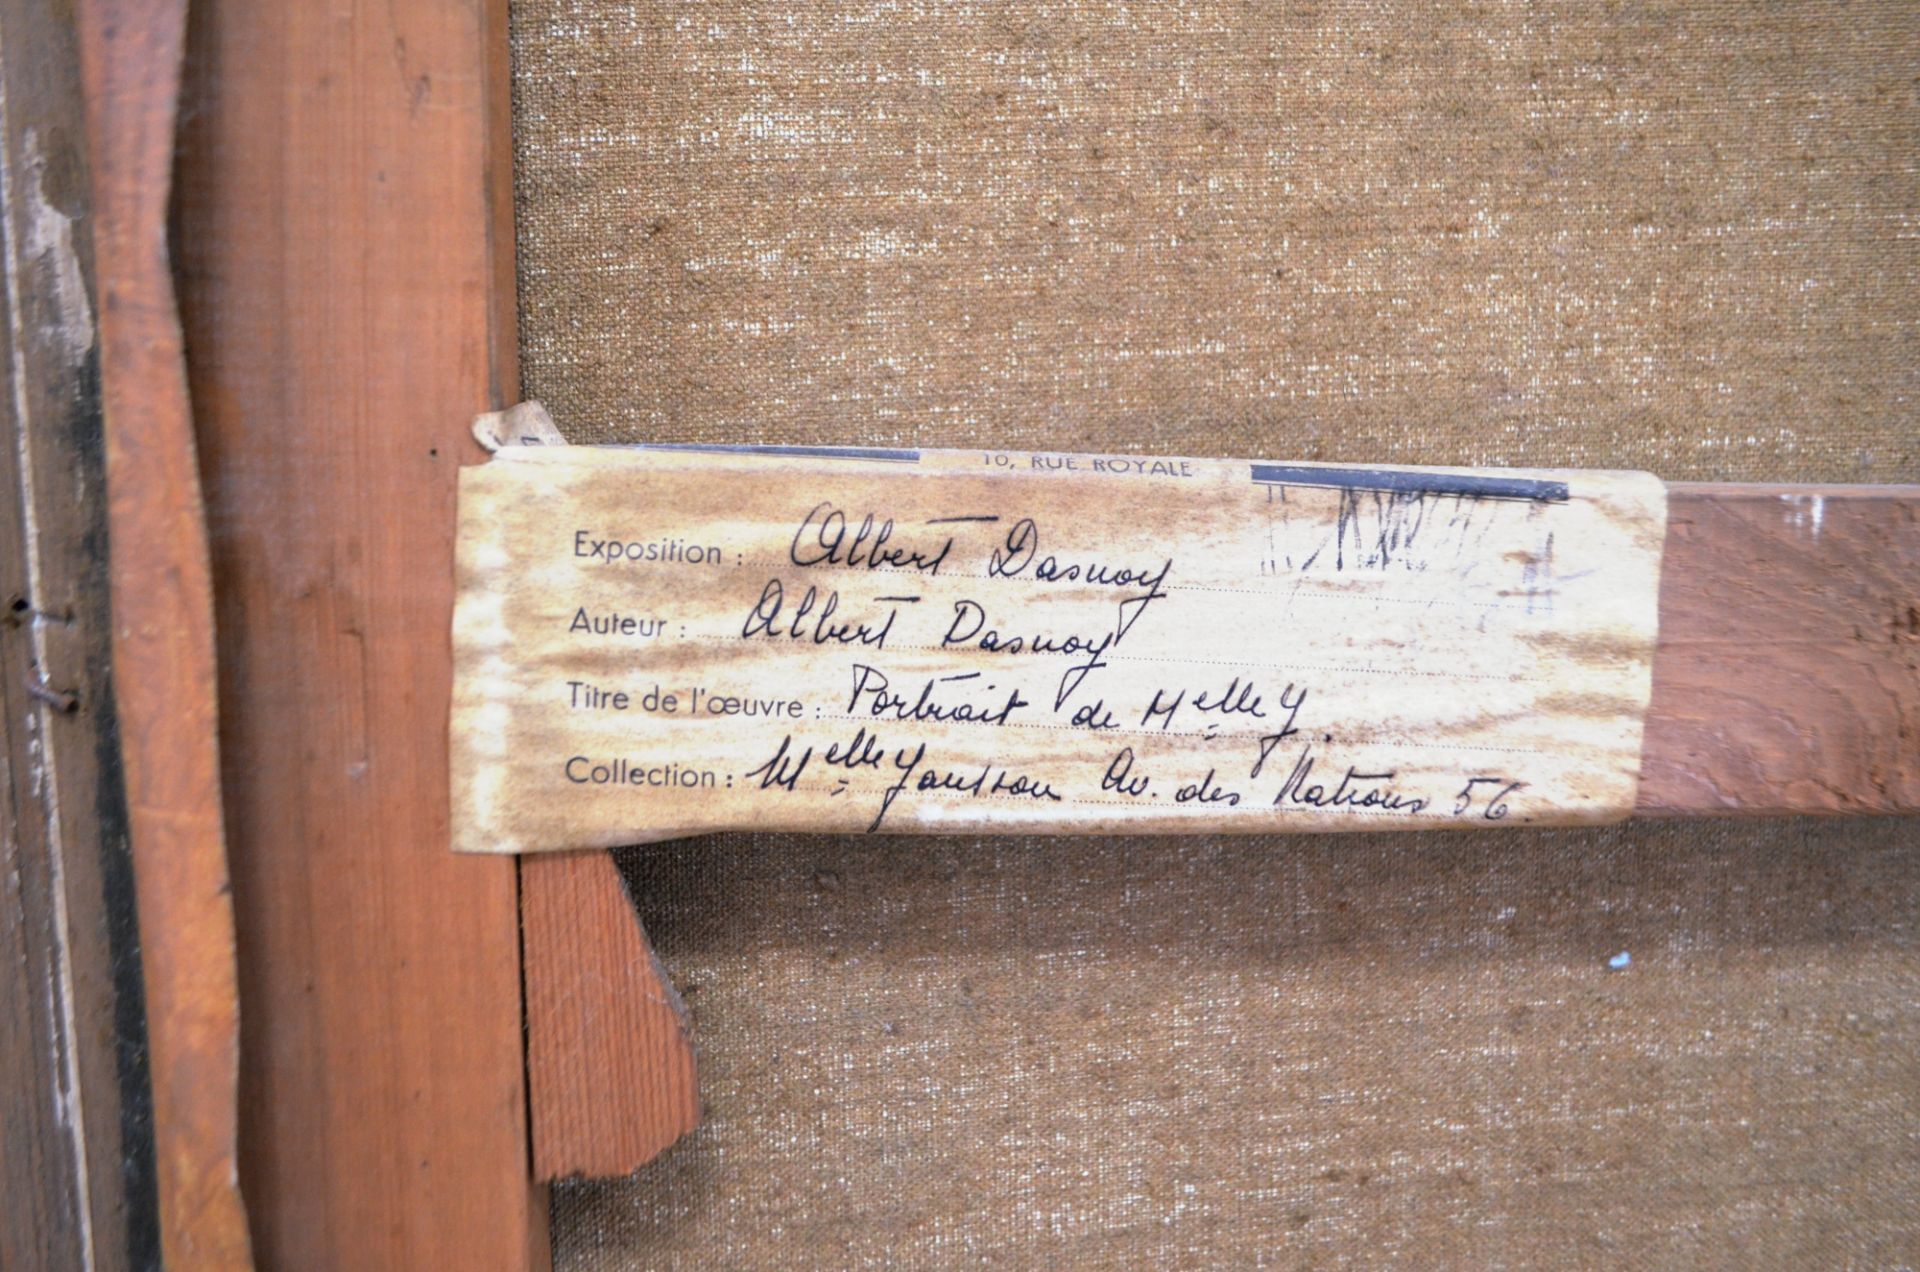 10, RUE ROYALE
Exposition : Albert Dasnoy
Auteur : Albert Dasnoy
Titre de l'œuvre : Portrait de Melle Y.
Collection : Melle Av. des Nations 56.